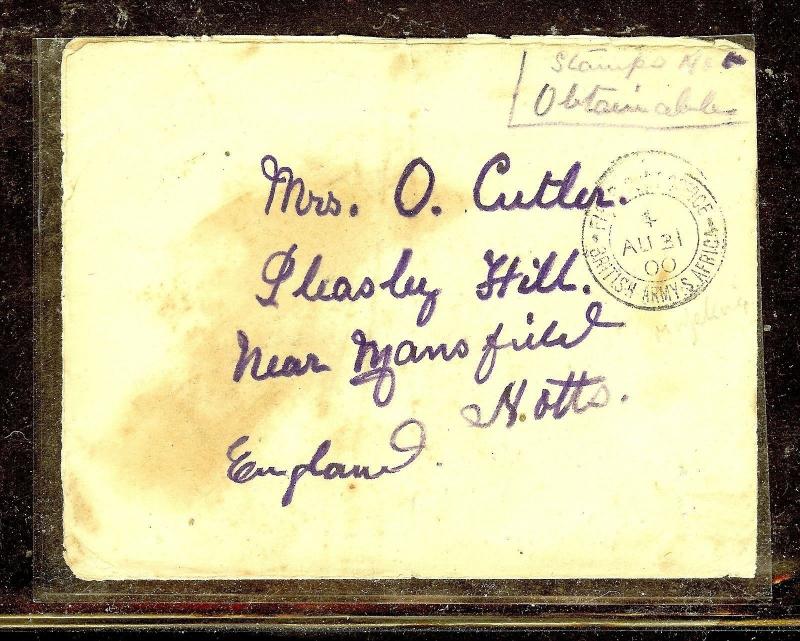 Stamps Not
Obtainable
Mrs. O. Cutler.
Pleasley Hill.
Near Mansfield
Notts.
England
FIELD POST OFFICE
AU 21
00
BRITISH ARMY S. AFRICA